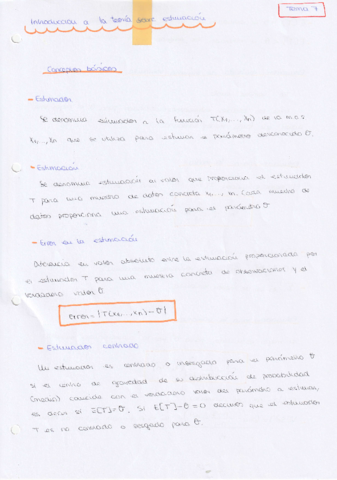 Introducción a la teoría sobre estimación
Tema 7
Conceptos básicos
- Estimador
Se denomina estimador a la función T(x₁, ..., xₙ) de la m.a.s
x₁, .., xₙ que se utiliza para estimar el parámetro desconocido θ.
- Estimación
Se denomina estimación al valor que proporciona el estimador
T para una muestra de datos concreta x₁, .., xₙ. Cada muestra de
datos proporciona una estimación para el parámetro θ
- Error en la estimación
Diferencia en valor absoluto entre la estimación proporcionada por
el estimador T para una muestra concreta de observaciones y el
verdadero valor θ
error = |T(x₁, .., xₙ) - θ|
- Estimador centrado
Un estimador es centrado o insesgado para el parámetro θ
si el centro de gravedad de su distribución de probabilidad
(media) coincide con el verdadero valor del parámetro a estimar,
es decir si E[T]=θ. Si E[T]-θ ≠ 0 decimos que el estimador
T es no centrado o sesgado para θ.